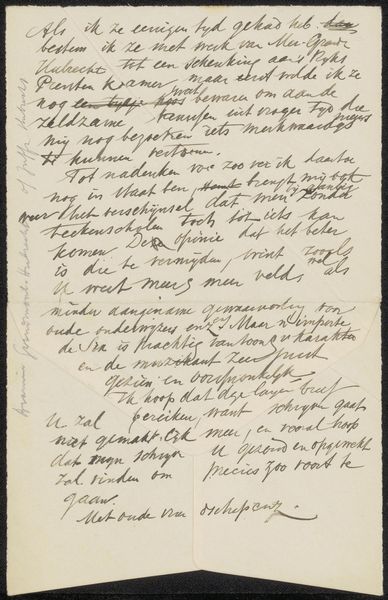 Als ik ze eenigen tyd gehad heb
bestem ik ze met werk van Mev. Grand
Hubrecht tot een schenking aan 's Ryks
Prenten Kamer, maar eerst wilde ik ze
nog wat bewaren om aan de
zeldzame kennissen uit vroeger tyd die
my nog bezoeken iets merkwaardigs
te kunnen vertoonen.
Tot nadenken voor zoo ver ik daartoe
nog in staat ben, brengt my ook
weer het verschynsel dat men zonder
teekenscholen toch tot iets kan
komen. De opinie dat het beter
is die te vermyden, wint zooals
U weet meer en meer veld, als
minder aangename gewaarwording voor
oude onderwyzers enz. Maar n'importe
de Sra is prachtig van toon en karakter
en de muzikant zeer juist
gezien en oorspronkelyk.
Ik hoop dat deze lange brief
U zal bereiken, want schryven gaat
niet gemakkelyk meer, en vooral hoop
dat myn schryven U gezond en opgewekt
zal vinden om precies zoo voort te
gaan.
Met oude vriendschap enz.